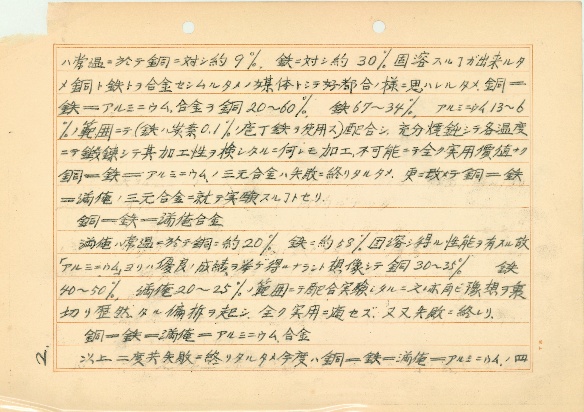 ハ常温ニ於テ銅ニ対シ約9%、鉄ニ対シ約30%固溶スルコトガ出来ルタ
メ銅ト鉄トヲ合金センムルタメノ媒体トシテ好都合ノ様ニ思ハレルタメ、銅=
鉄=アルミニウム合金ヲ銅20~60%、鉄67~34%、アルミニウム13~6
%ノ範囲ニテ(鉄ハ炭素0.1%ノ庖丁鉄ヲ使用ス)配合シ、充分燒鈍シテ各温度
ニテ鍛錬シテ其加工性ヲ検シタルニ何レモ加工不可能ニテ全ク実用価値ナク
銅=鉄=アルミニウムノ三元合金ハ失敗ニ終リタルタメ、更ニ改メテ銅=鉄
=満俺ノ三元合金ニ就テ実験スルコトセリ.
銅=鉄=満俺合金
満俺ハ常温ニ於テ銅ニ約20%、鉄ニ約18%固溶シ得ル性能ヲ有スル故
「アルミニウム」ヨリハ優良ノ成績ヲ挙ゲ得ルナラント想像シテ銅30~35%鉄
40~50%、満俺20~25%ノ範囲ニテ配合実験シタルニ又亦再ビ予想ヲ裏
切リ歴然タル偏析ヲ起シ、全ク実用ニ適セズ、又又失敗ニ終レリ.
銅=鉄=満俺=アルミニウム合金
以上ニ度共失敗ニ終リタルタメ今度ハ銅=鉄=満俺=アルミニウム、ノ四
2.